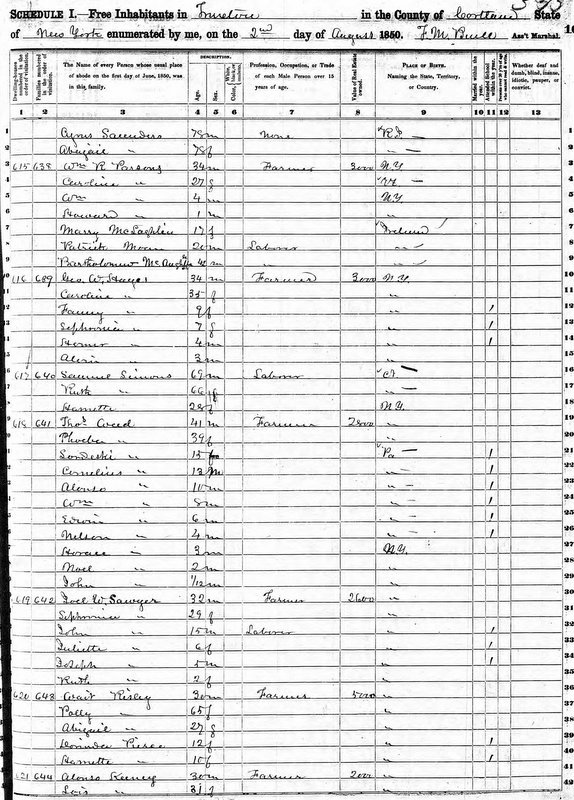 SCHEDULE I.—Free Inhabitants in Truxton in the County of Cortland State
of New York enumerated by me, on the 2nd day of August 1850. Ass't Marshal.
Dwelling-houses numbered in the order of visitation.
Families numbered in the order of visitation.
The Name of every Person whose usual place of abode on the first day of June, 1850, was in this family.
DESCRIPTION.
Age.
Sex.
Color,
Profession, Occupation, or Trade of each Male Person over 15 years of age.
Value of Real Estate owned.
PLACE OF BIRTH. Naming the State, Territory, or Country.
Married within the year.
Attended School within the year.
Whether deaf and dumb, blind, insane, idiotic, pauper, or convict.
1 2 3 4 5 6 7 8 9 10 11 12 13
1 Cyrus Saunders 78 m None R.I. —
2 Abigail " 78 f " —
3 615 638 Wm R Parsons 34 m Farmer 3000 N.Y.
4 Caroline " 27 f
5 Wm " 4 m N.Y.
6 Howard " 1 m "
7 17 f Ireland
8 Patrick 20 m Laborer "
9 Bartholomew m "
10 616 639 Geo. W. 34 m Farmer 3000 N.Y.
11 Caroline " 35 f "
12 Fanny " 9 f " 1
13 Sephronia " 7 f " 1
14 Homer " 4 m " 1
15 " 3 m "
16 617 640 Samuel Simons 69 m Laborer Ct —
17 Ruth " 66 f " —
18 Harriette " 28 f N.Y.
19 618 641 Thos. Weed 41 m Farmer 2800 "
20 Phoebe " 39 f "
21 " 15 Pa — 1
22 Cornelius " 13 m " — 1
23 Alonso " 10 m " — 1
24 Wm " 8 m " — 1
25 Edwin " 6 m " — 1
26 Nelson " 4 m " — 1
27 Horace " 3 m N.Y.
28 Noel " 2 m "
29 John " 1/12 m "
30 619 642 Joel W. Sawyer 32 m Farmer 2600 "
31 Sephronia " 29 f "
32 John " 15 m Laborer " 1
33 Juliette " 6 f " 1
34 Joseph " 5 m " 1
35 Ruth " 2 f "
36 620 643 Wait Risley 30 m Farmer 5000 "
37 Polly " 65 f "
38 Abigail " 27 f "
39 Pierce 12 f " 1
40 Harriette " 10 f " 1
41 621 644 Alonso Keeney 30 m Farmer 2000 "
42 Lois " 31 f "